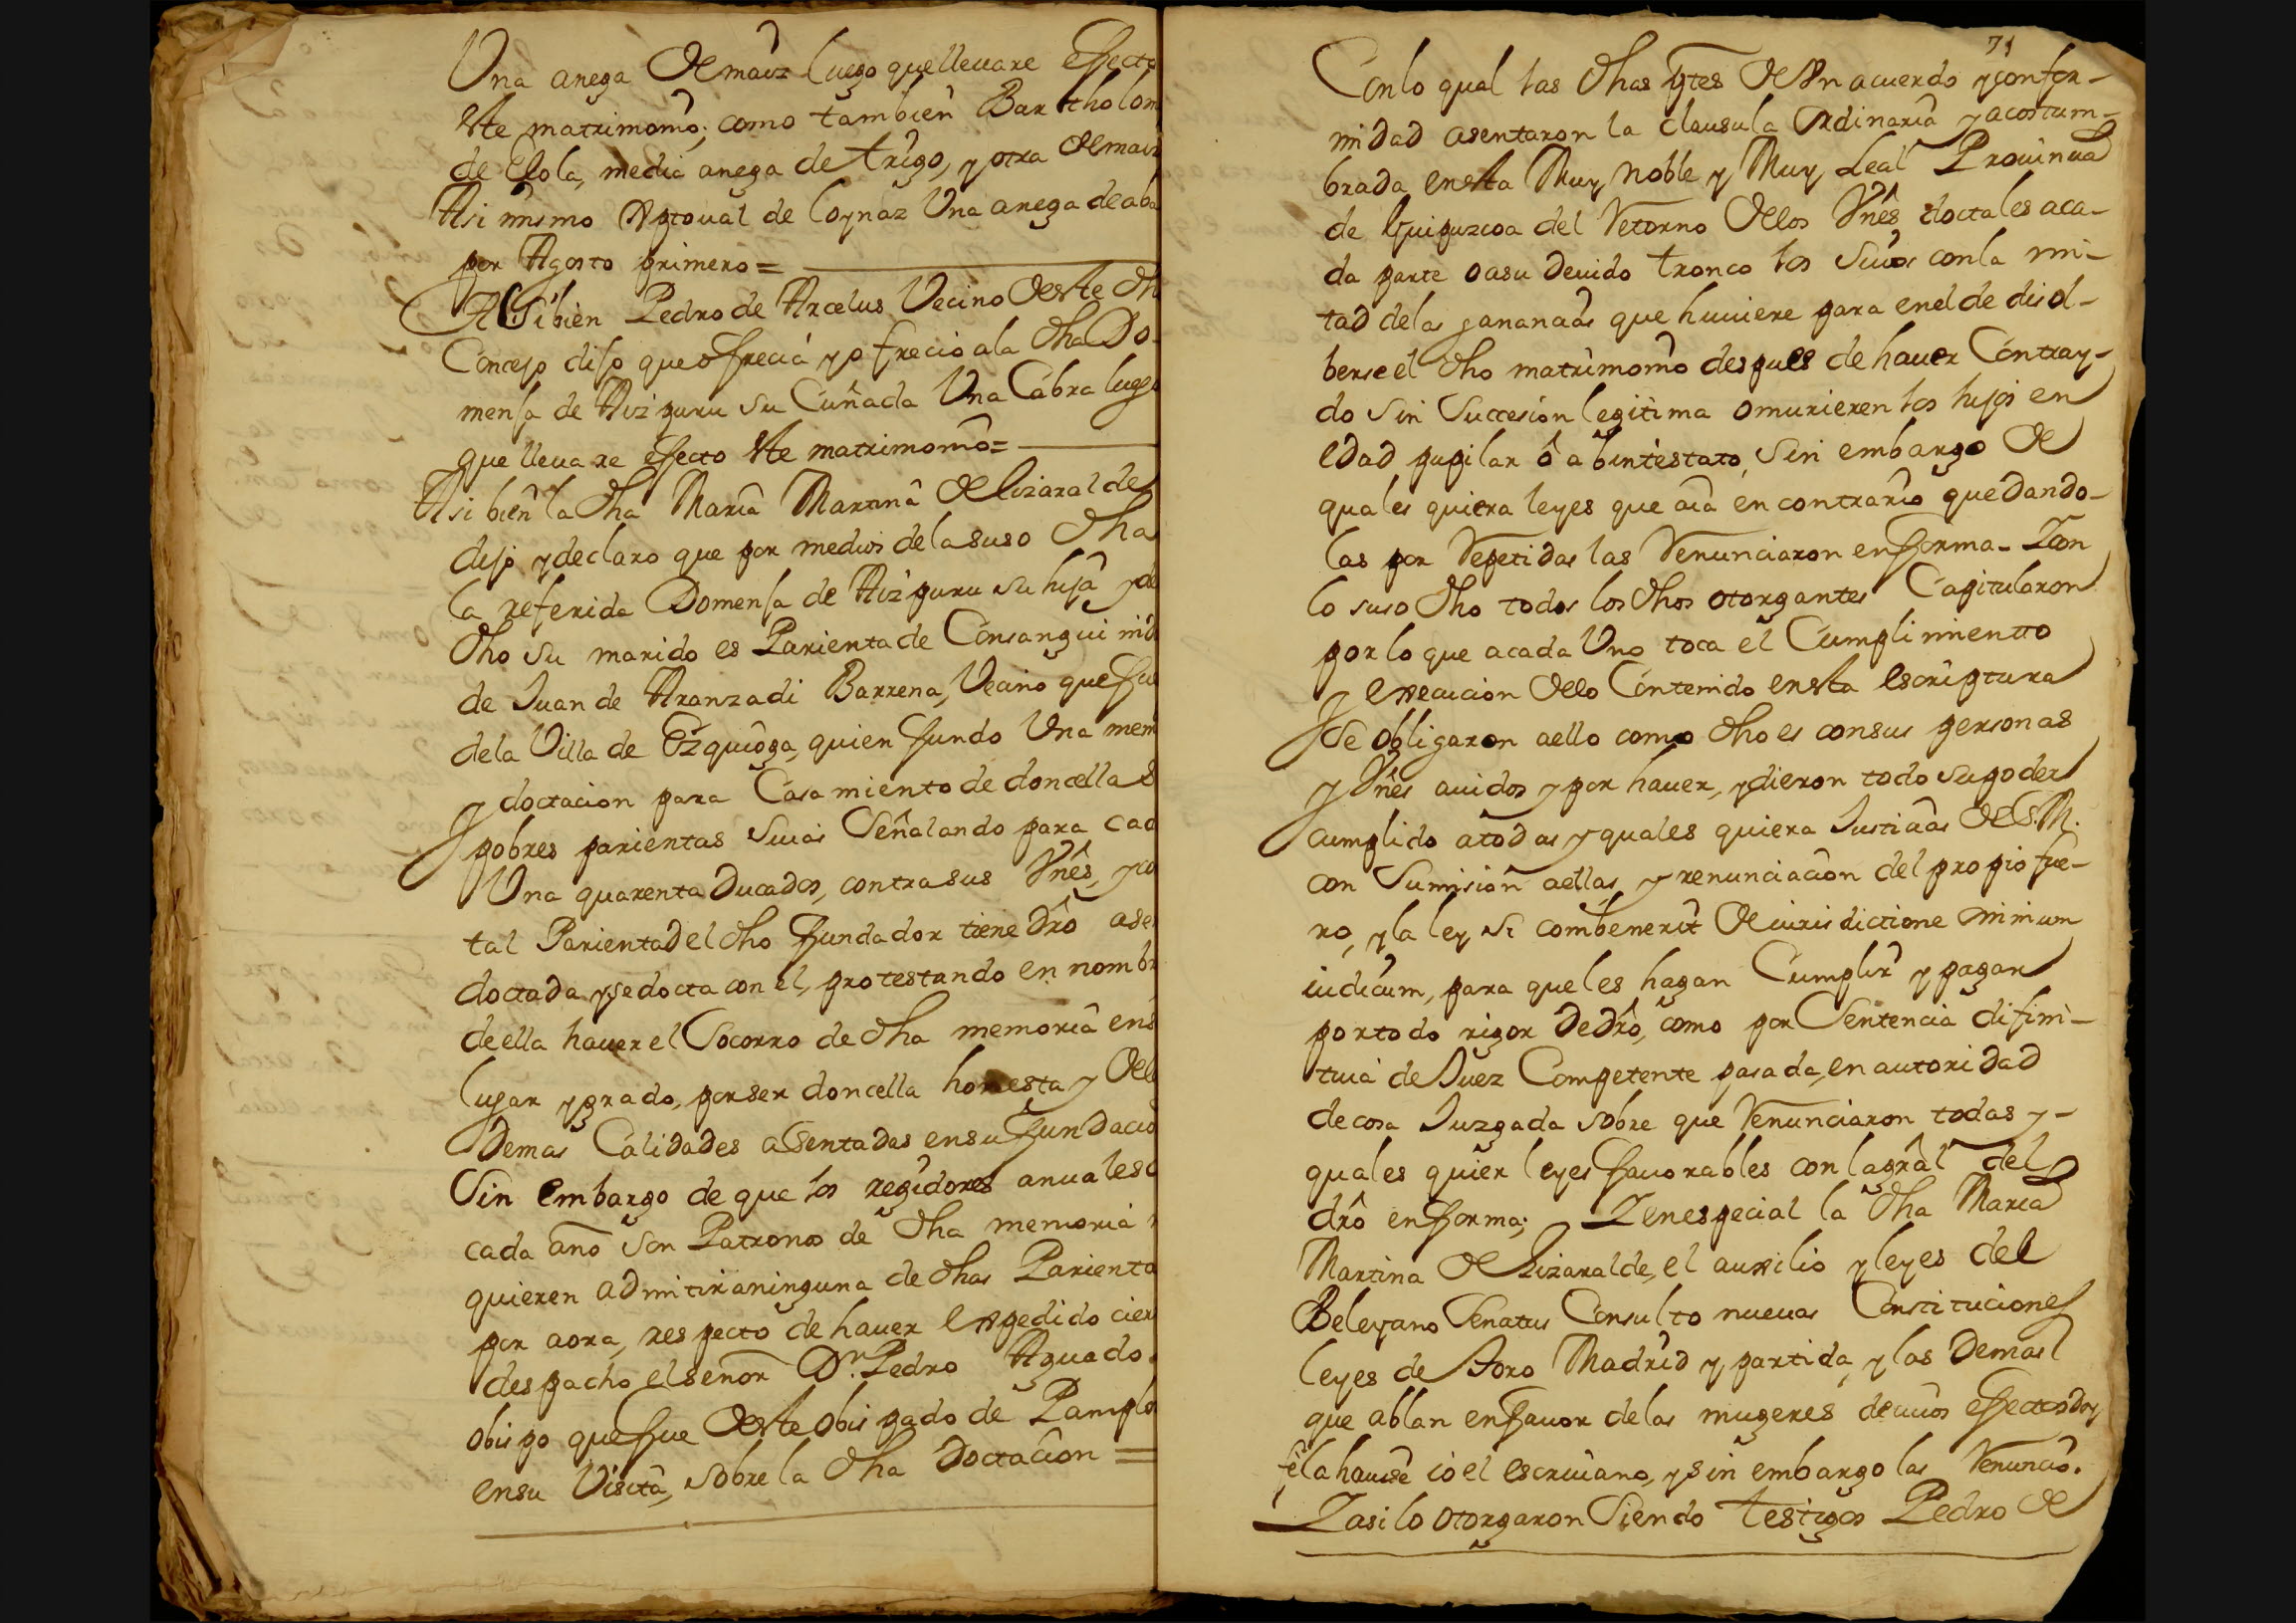 Una anega de maiz luego que lleuare effecto
este matrimonio; como tambien Bartholom
de Elola, media anega de trigo, y otra de maiz
Asi mismo Xptoual de loynaz Una anega de aba
por Agosto primero =
Asi bien Pedro de Arcelus Vecino de este dh
Concejo dijo que ofrecia y ofrecio ala dha Do-
mensa de Aizpuru su Cuñada Una Cabra luego
que lleuare effecto este matrimonio =
Asi bien la dha Maria Martina de lizaralde
dijo y declaro que por medios de la suso dha
la referida Domensa de Aizpuru su hija y de
dho su marido es Parienta de Consanguinid
de Juan de Aranzadi Barrena, Vecino que fue
de la Villa de Ezquioga, quien fundo Una mem
y doctacion para Casamiento de doncellas
pobres parientas suias Señalando para cad
Una quarenta Ducados, contra sus Vnês, y co
tal Parienta del dho fundador tiene drô a ser
doctada y se docta con el, protestando en nombr
de ella hauer el Socorro de dha memoria en s
lugar y grado, por ser doncella honesta y de
Demas Calidades asentadas en su fundacio
Sin embargo de que los regidores anuales
cada año son Patronos de dha memoria
quieren admitir a ninguna de dhas Parienta
por aora, respecto de hauer expedido cier
despacho el señor Dn. Pedro Aguado.
obispo que fue de este obispado de Pamplo
en su Visita, sobre la dha Doctacion =
71
Con lo qual las dhas ptes de Vn acuerdo y confor-
midad asentaron la clausula Ordinaria y acostum-
brada en esta Muy noble y Muy Leal Prouincia
de Guipuzcoa del Retorno de los Vnês doctales a ca-
da parte o a su deuido tronco los suios con la mi-
tad de las gananciàs que huuiere para en el de disol-
berse el dho matrimonio despues de hauer Contray-
do sin Succesion legitima o murieren los hijos en
edad pupilar ô abintestato, sin embargo de
quales quiera leyes que aia en contrario que dando-
las por Repetidas las Renunciaron en forma - I con
lo suso dho todos los dhos otorgantes Capitularon
por lo que a cada Uno toca el Cumplimientto
y execucion de lo Contenido en esta escriptura
se obligaron a ello como dho es con sus personas
y Vnês auidos y por hauer, y dieron todo su poder
cumplido a todas y quales quiera Justicias de S.M.
con Sumision a ellas, y renunciacion del propio fue-
ro, y la ley si combenerit de iurisdictione mnium
iudicum, para que les hagan Cumplir y pagar
por todo rigor de drô, como por Sentencia difini-
tiua de Juez Competente pasada, en autoridad
de cosa Juzgada sobre que Renunciaron todas y-
quales quier leyes fauorables con la grâl del
drô en forma; I en especial la dha Maria
Martina de Lizaralde, el auxilio y leyes del
Beleyano Senatus Consulto nueuas Constituciones
leyes de Toro Madrid y partida, y las demas
que ablan en fauor de las mugeres de cuios effectos doy
fê la hauisê io el escriuano, y sin embargo las Renuncio.
I asi lo otorgaron Siendo testigos Pedro de